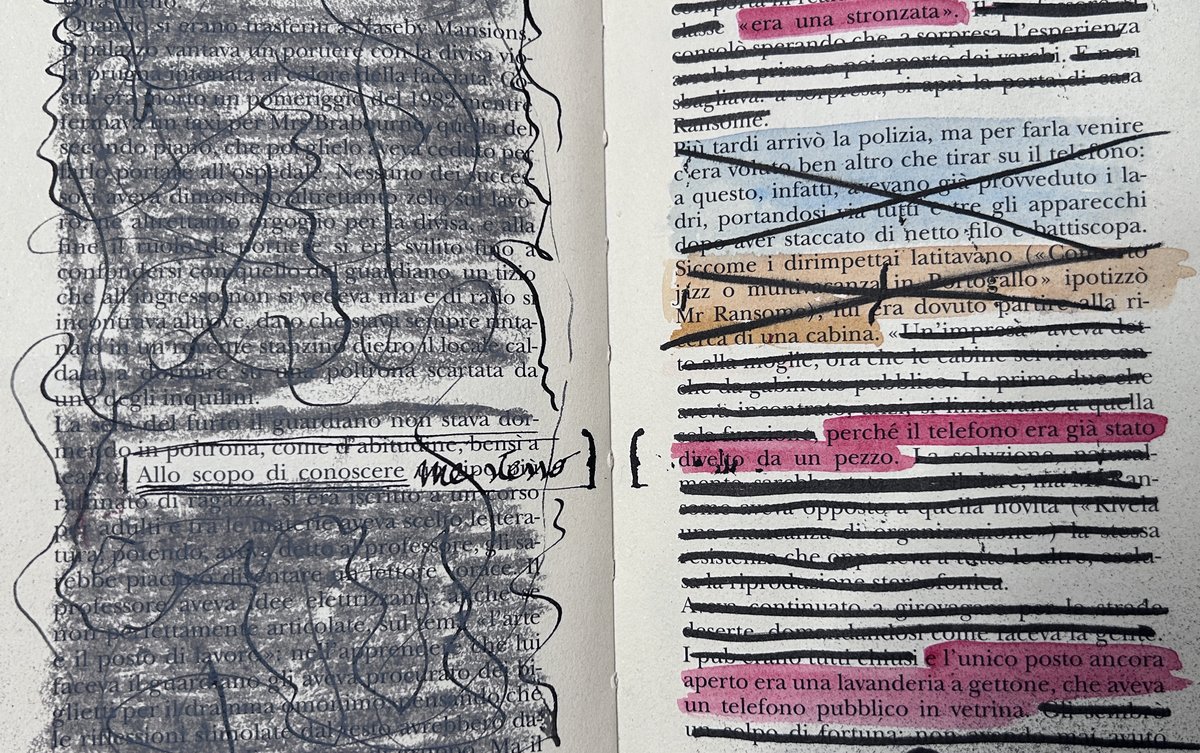 Quando si erano trasferiti a Naseby Mansions
il palazzo vantava un portiere con la divisa vio-
la prugna intonata al colore della facciata. Co-
stui era morto un pomeriggio del 1982 mentre
fermava un taxi per Mrs Brabourne, quella del
secondo piano, che poi glielo aveva ceduto per
farlo portare all'ospedale. Nessuno dei succes-
sori aveva dimostrato altrettanto zelo sul lavo-
ro, né altrettanto orgoglio per la divisa, e alla
fine il ruolo di portiere si era svilito fino a
confondersi con quello del guardiano, un tizio
che all'ingresso non si vedeva mai e di rado si
incontrava altrove, dato che stava sempre rinta-
nato in un rovente stanzino dietro il locale cal-
daia a dormire su una poltrona scartata da
uno degli inquilini.
La sera del furto il guardiano non stava dor-
mendo in poltrona, come d'abitudine, bensì a
teatro. Allo scopo di conoscere
raffinato di ragazza, si era iscritto a un corso
per adulti e tra le materie aveva scelto lettera-
tura; potendo, aveva detto al professore, gli sa-
rebbe piaciuto diventare un lettore vorace. Il
professore aveva idee elettrizzanti, anche se
non perfettamente articolate, sul tema «l'arte
e il posto di lavoro»; nell'apprendere che lui
faceva il guardiano gli aveva procurato dei bi-
glietti per il dramma omonimo, pensando che
le riflessioni stimolate dal testo avrebbero da-
«era una stronzata». Il
consolò sperando che a sorpresa l'esperienza
avrebbe prima o poi aperto dei varchi. E non
sbagliava: a sorpresa, si aprì la porta di casa
Ransome.
Più tardi arrivò la polizia, ma per farla venire
c'era voluto ben altro che tirar su il telefono:
a questo, infatti, avevano già provveduto i la-
dri, portandosi via tutti e tre gli apparecchi
dopo aver staccato di netto filo e battiscopa.
Siccome i dirimpettai latitavano («Concerto
jazz o multivacanza in Portogallo» ipotizzò
Mr Ransome), lui era dovuto partire alla ri-
cerca di una cabina. «Un'impresa» aveva det-
to alla moglie, ora che le cabine servivano an-
che da gabinetto pubblico. Le prime due che
aveva incontrato, anzi, si limitavano a quella
sola funzione, perché il telefono era già stato
divelto da un pezzo. La soluzione natural-
mente sarebbe stata un cellulare, ma Mr Ran-
some aveva opposto a quella novità («Rivela
una mancanza di organizzazione») la stessa
resistenza che opponeva a tutte le altre, esclu-
sa la riproduzione stereofonica.
Aveva continuato a girovagare per le strade
deserte, domandandosi come faceva la gente.
I pub erano tutti chiusi e l'unico posto ancora
aperto era una lavanderia a gettone, che aveva
un telefono pubblico in vetrina. Gli sembrò
un colpo di fortuna: non avendo mai avuto